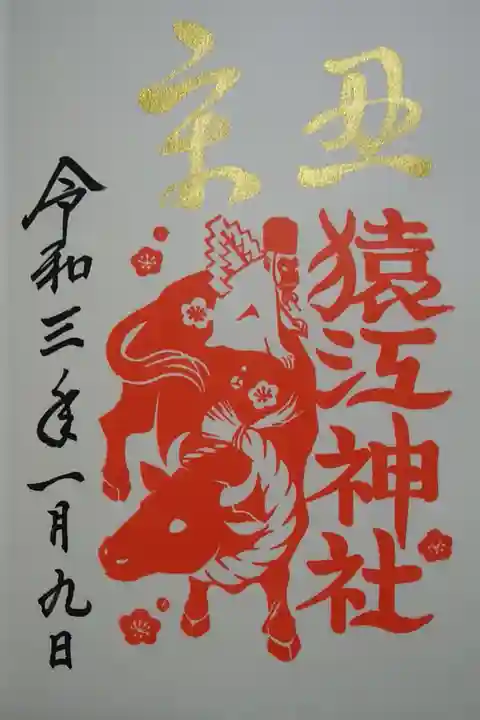 辛丑
猿江神社
令和三年一月九日